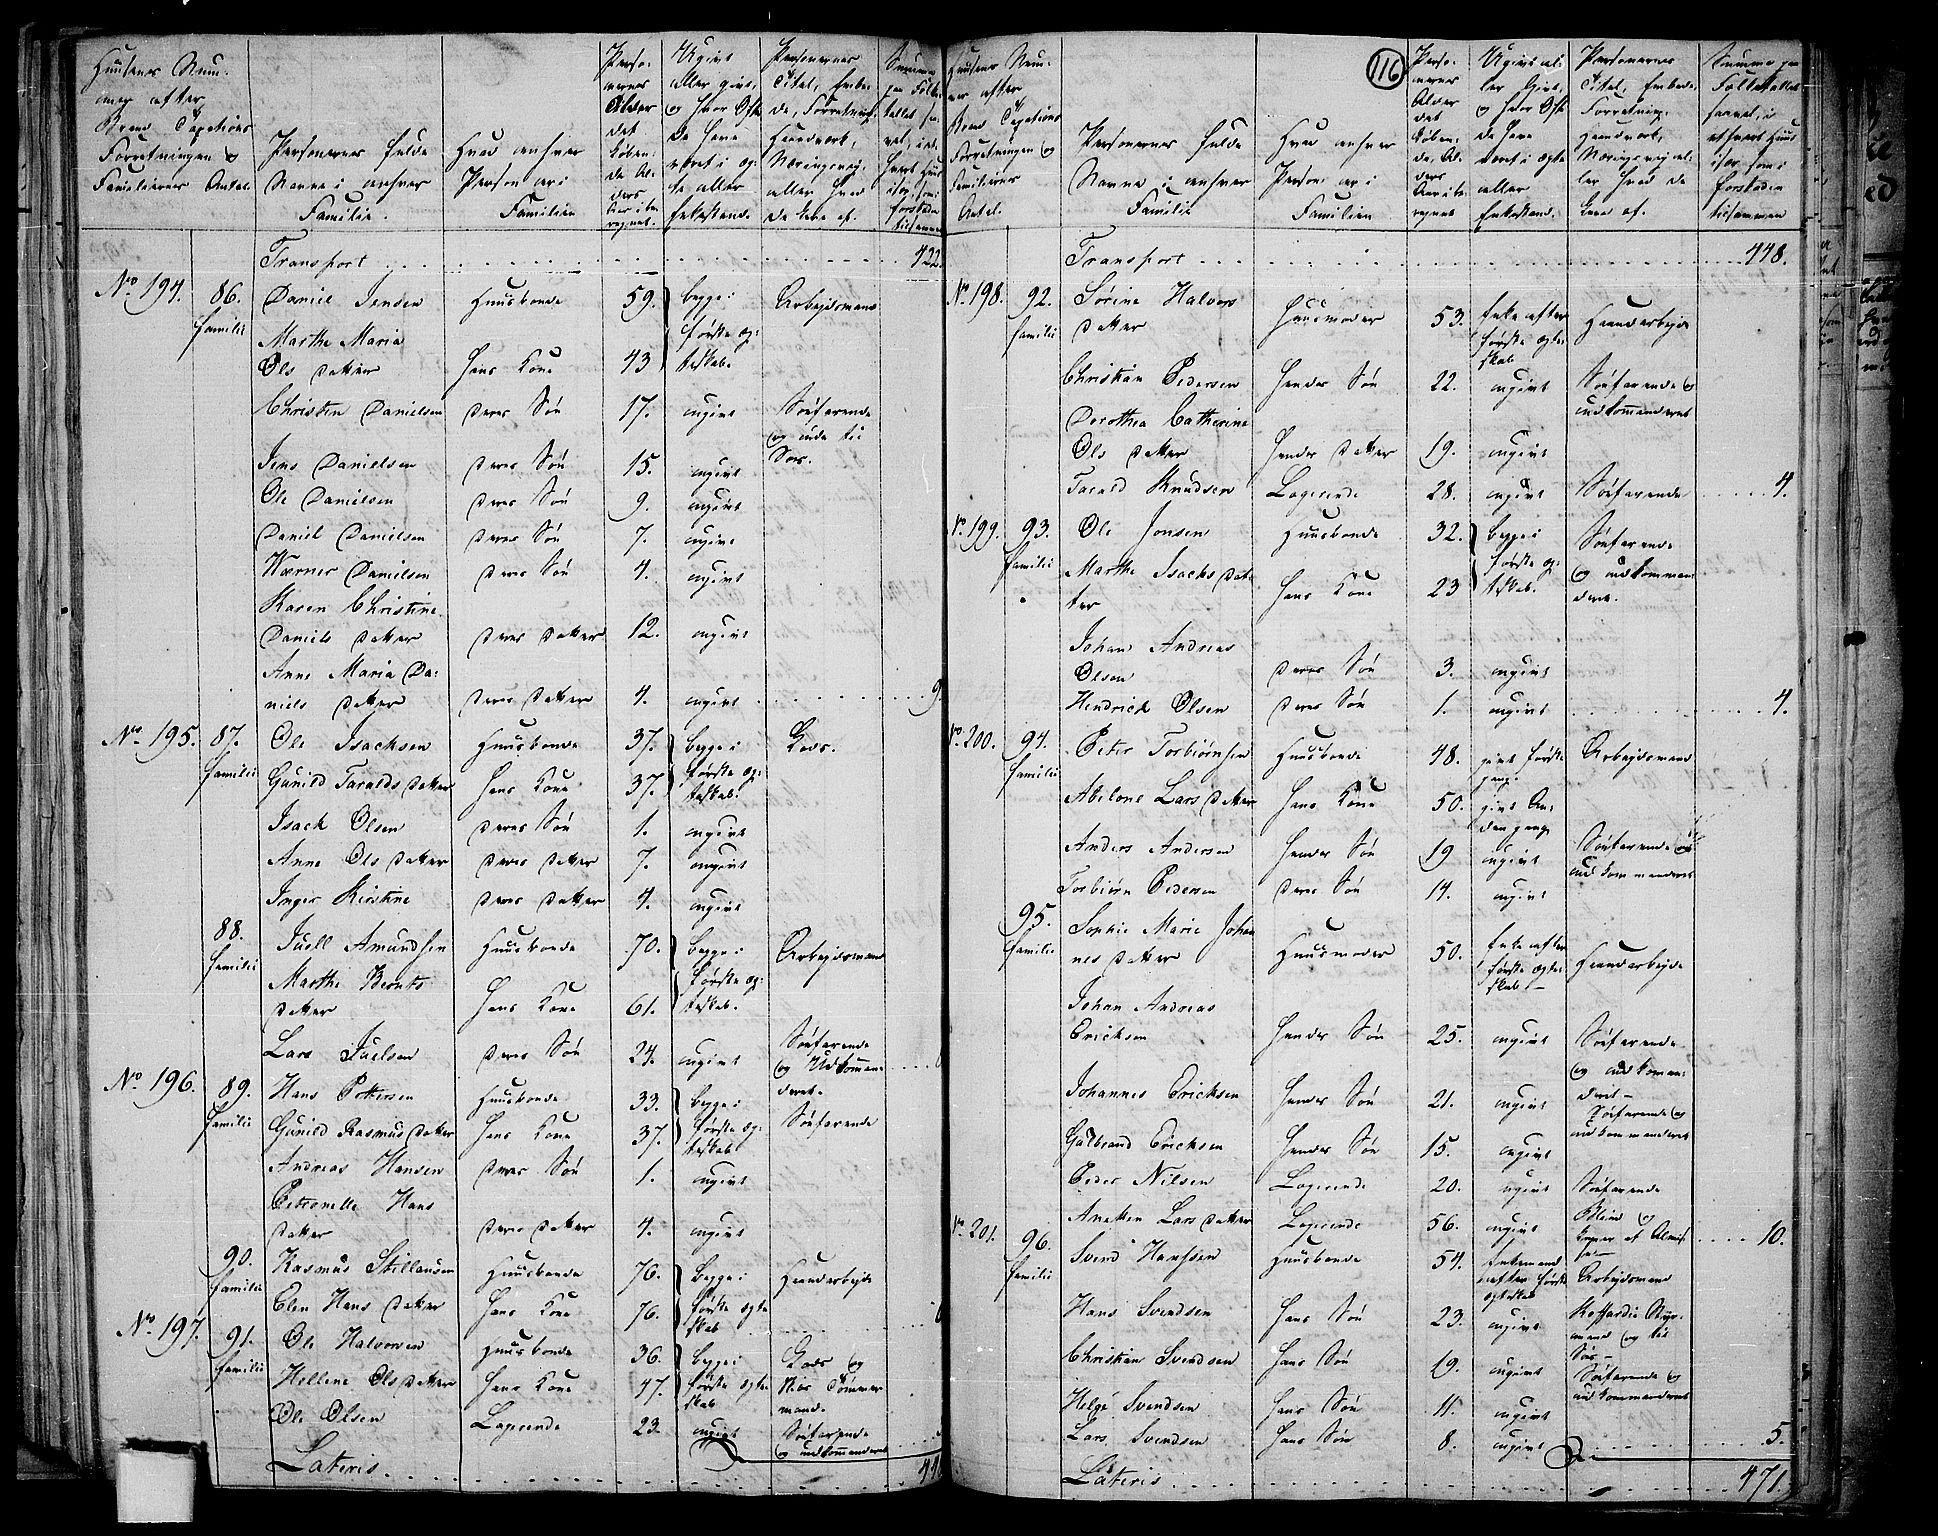 Huusenes Num-
mer efter
Brand Taxations
Forretningen og
Familiernes Antal.
Personernes fulde
Navne i enhver
Familie.
Hvad enhver
Person er i
Familien
Perso-
nernes
Alder
det
løben-
de Al-
ders
Aar ibe-
regnet.
Ugivt
eller givt,
og hvor ofte
de have
været i æg-
te eller
Enkestand.
Personernes
Titel, Embe-
de, Forretning,
Haandværk,
Næringsvej,
eller hvad
de leve af.
Transport 422.
No 194. 86. Familie Daniel Jensen Huusbonde 59. begge i første æg-teskab. Arbejdsmand
Marthe Maria
Ols Datter Hans Kone 43
Christen Danielsen Deres Søn 17. ugivt Søefarende og ude til Søes.
Jens Danielsen Deres Søn 15. ugivt
Ole Danielsen Deres Søn 9. ugivt
Daniel Danielsen Deres Søn 7. ugivt
Werner Danielsen Deres Søn 4. ugivt
Karen Christine
Daniels Datter Deres Datter 12. ugivt
Anne Maria Da-
niels Datter Deres Datter 4. ugivt 9.
No 195. 87. Familie Ole Isachsen Huusbonde 37. begge i første æg-teskab. Lods.
Gunild Taralds Datter Hans Kone 37.
Isach Olsen Deres Søn 1. ugivt
Anne Ols Datter Deres Datter 7. ugivt
Inger Kirstine Deres Datter 4. ugivt
88. Familie Juell Amundsen Huusbonde 70. begge i første æg-teskab. Arbejdsmand
Marthe Bernts
Datter Hans Kone 61.
Lars Juelsen Deres Søn 24. ugivt Søefarende og Udkomman-deret.
No 196. 89. Familie Hans Pettersen Huusbonde 33. begge i første æg-teskab Søefarende
Gunild Rasmus Datter Hans Kone 37.
Andreas Hansen Deres Søn 1. ugivt
Petronelle Hans
Datter Deres Datter 4. ugivt
90. Familie Rasmus Stillausen Huusbonde 76. begge i første ægte skab Haandarbejde
Elen Hans Datter Hans Kone 76.
No 197. 91. Familie Ole Halvorsen Huusbonde 36. begge i første ægte skab Lods og Tømmer mand.
Hellene Ols Datter Hans Kone 47.
Ole Olsen Logerende 23. ugivt Søefarende og udkommanderet
Lateris
116
Huusenes Num-
mer efter
Brand Taxations
Forretningen og
Familiernes
Antal.
Personernes fulde
Navne i enhver
Familie
Hvad enhver
Person er i
Familien
Perso-
nernes
Alder
det
løben-
de Al-
ders
Aar ibe-
regnet
Ugivt el-
ler givt,
og hvor ofte
de have
været i ægte
eller
Enkestand.
Personernes
Titel, Embede,
Forretning,
Haandværk,
Næringsvej el-
ler hvad de
leve af.
Summa paa
Folketallet
saavel i
ethvert Huus
især som i
forstaden
tilsammen
Transport 448.
No. 198. 92. Familie Sørine Halvors
Datter Huusmoder 53. Enke efter første ægte-skab Haandarbejde
Christian Pedersen Hendes Søn 22. ugivt Søefarende og udkommanderet
Dorothea Cathrine
Ols Datter Hendes Datter 19. ugivt
Tarald Knudsen Logerende 28. ugivt Søefarende 4.
No. 199. 93. Familie Ole Jonsen Huusbonde 32. begge i første æg-teskab. Søefarende og udkomman deret.
Marthe Isachs Dat-
ter Hans Kone 23
Johan Andreas
Olsen Deres Søn 3. ugivt
Hendrich Olsen Deres Søn 1. ugivt 4.
No. 200. 94. Familie Peter Torbiørnsen Huusbonde 48. givt første gang. Arbejdsmand
Abelone Lars Datter Hans Kone 50. givt An-den gang
Anders Andersen Hendes Søn 19 ugivt Søefarende og udkommanderet
Torbiørn Pedersen Deres Søn 14. ugivt
95. Familie Sophie Marie Johan
nes Datter Huusmoder 50. Enke efter første ægte-skab Haandarbejde
Johan Andreas
Ericksen Hendes Søn 25. ugivt Søefarende og udkoman-deret
Johannes Ericksen Hendes Søn 21. ugivt Søefarende og udkommanderet
Gulbrand Ericksen Hendes Søn 15. ugivt
Peder Nilsen Logerende 20. ugivt Søefarende
Aneken Lars Datter Logerende 56. ugivt Blind og lever af Almis-se 10.
No. 201. 96. Familie Svend Hanssen Huusbonde 54. Enkemand efter første ægteskab Arbejdsmand
Hans Svendsen Hans Søn 23. ugivt Koffardie Styr-mand og til Søes
Christian Svendsen Hans Søn 19. ugivt Søefarende og udkommanderet
Helge Svendsen Hans Søn 11. ugivt
Lars Svendsen Hans Søn 8. ugivt 5.
Lateris 471.